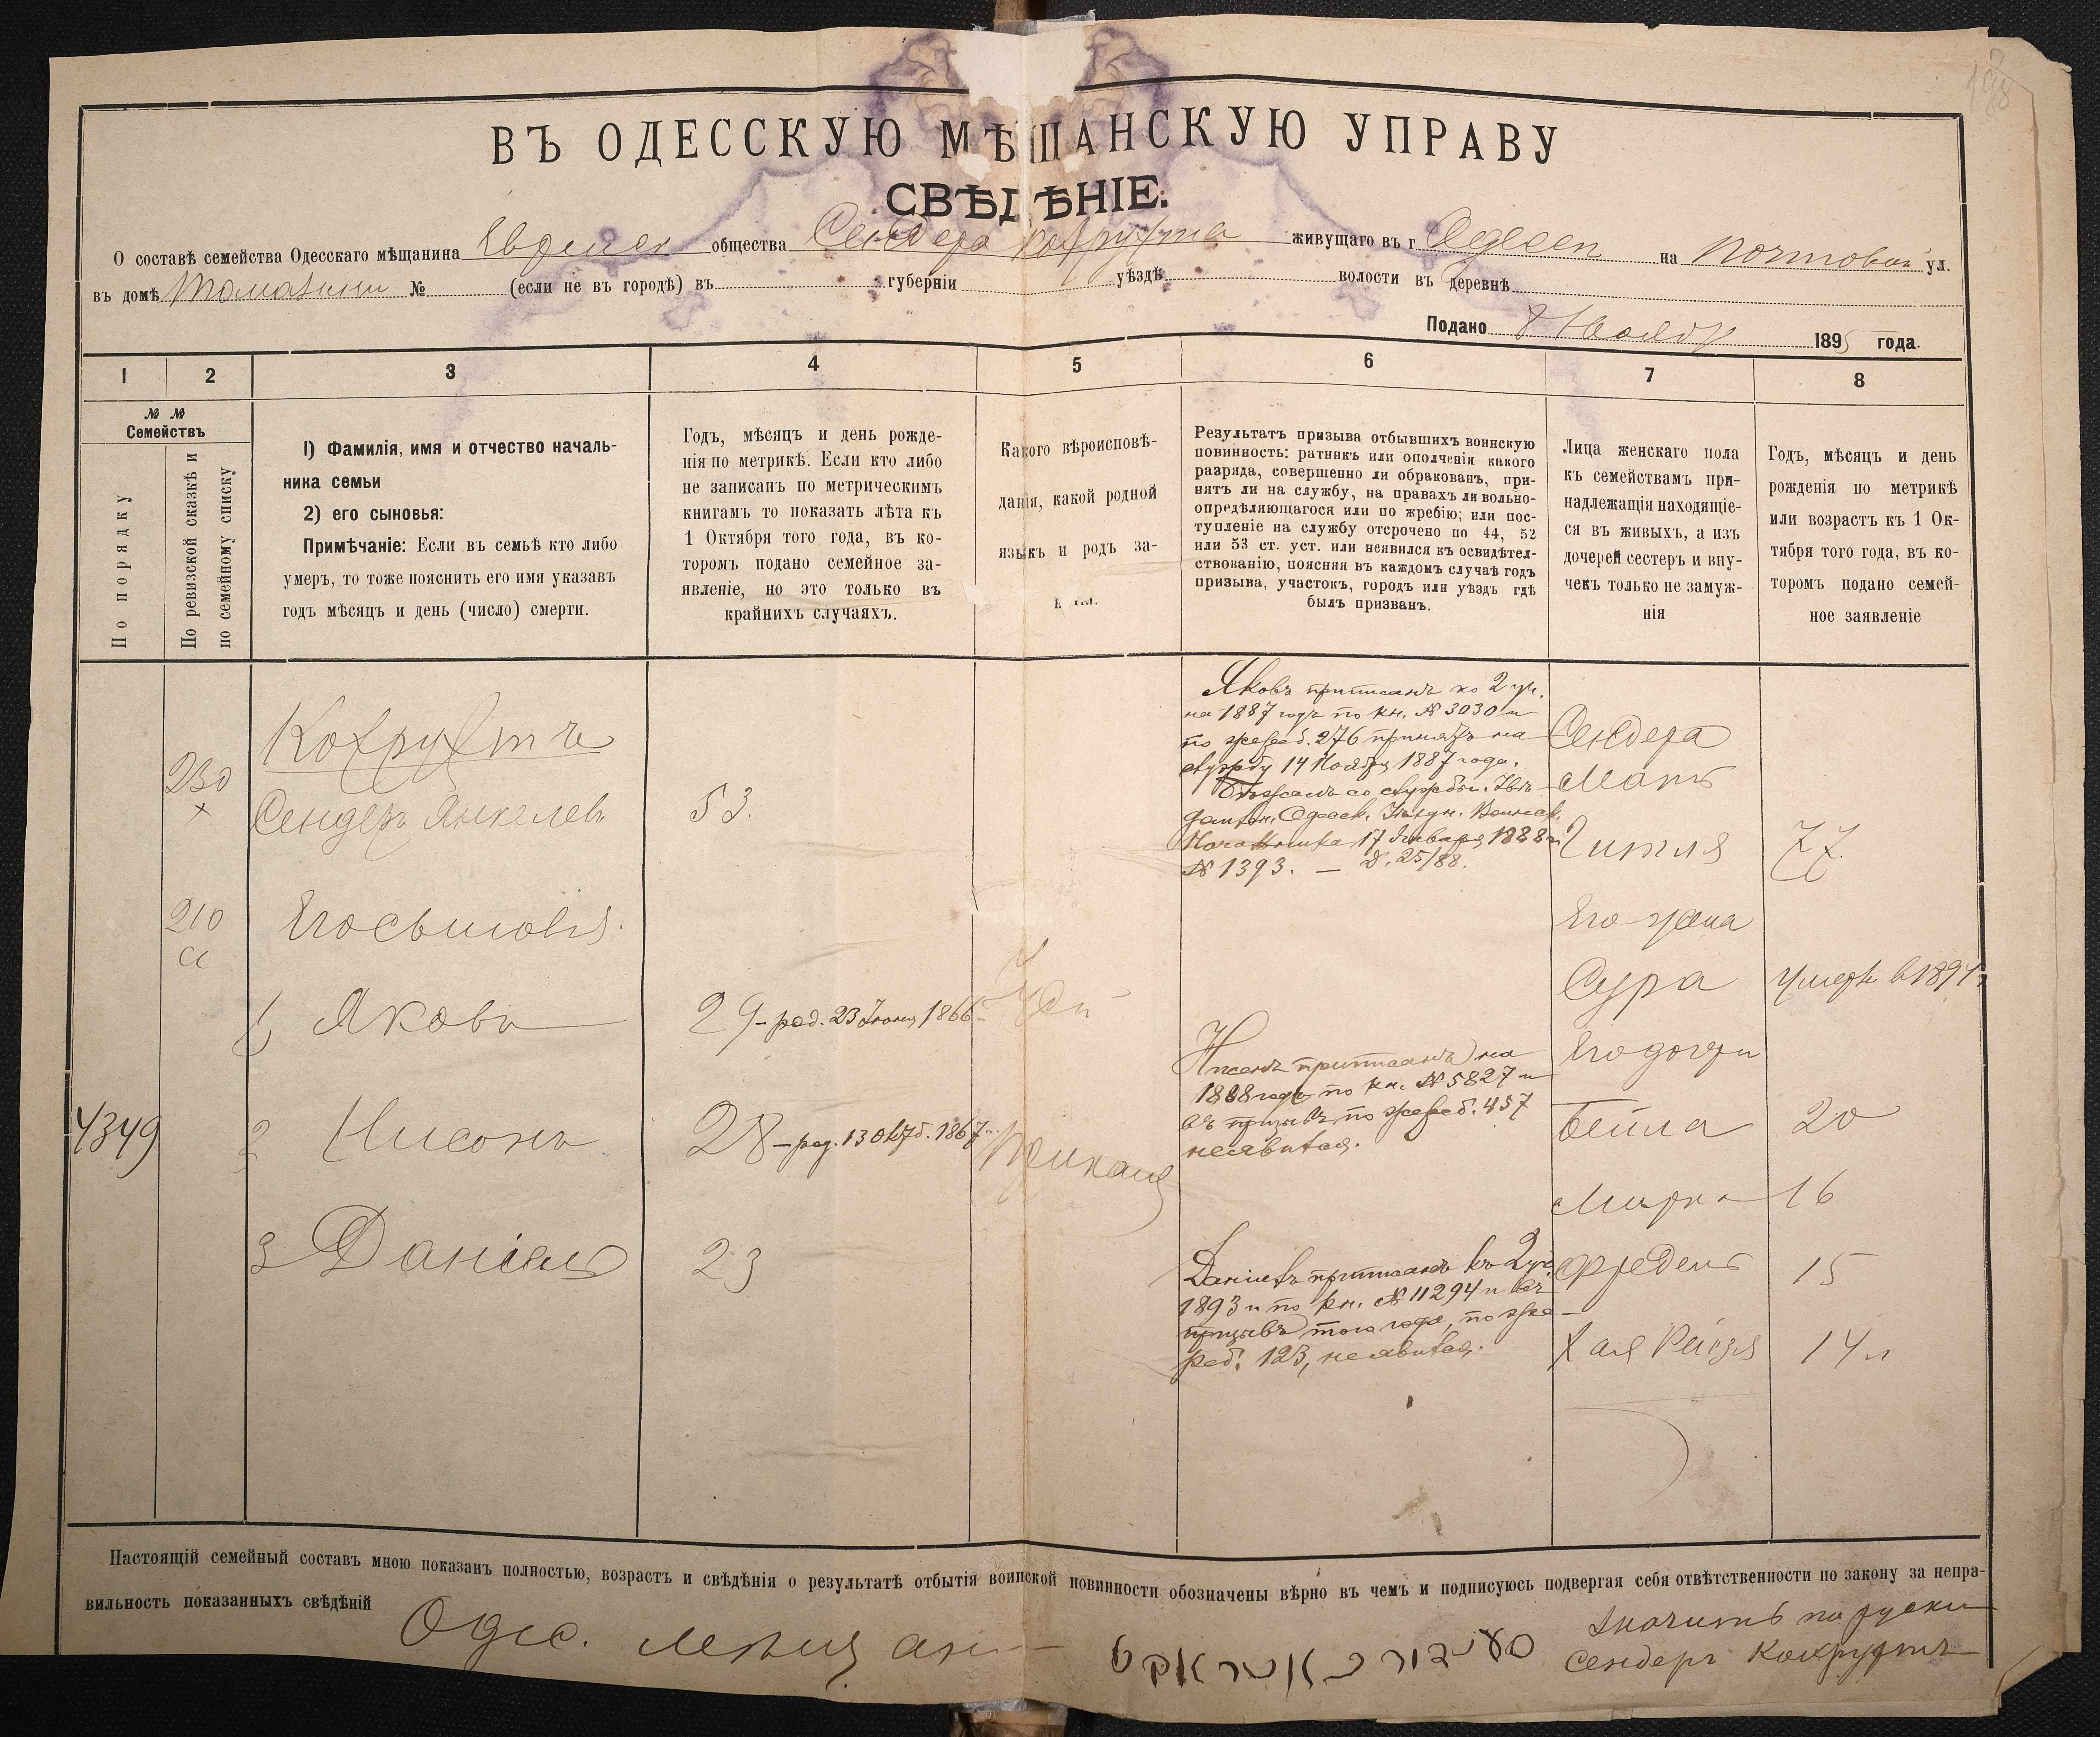 198
ВЪ ОДЕССКУЮ МѢЩАНСКУЮ УПРАВУ
СВѢДѢНІЕ:
О составѣ семейства Одесскаго мѣщанина Еврейск общества Сендера Кохрухта живущаго въ г Одессѣ на Почтовой ул.
въ домѣ Томазини № (если не въ городѣ) въ губерніи уѣздѣ волости въ деревнѣ
Подано 8 Ноября 1895 года.
1 2 3 4 5 6 7 8
№ № Семействъ
По порядку
По ревизской сказкѣ и по семейному списку
1) Фамилія, имя и отчество началь-
ника семьи
2) его сыновья:
Примѣчаніе: Если въ семьѣ кто либо
умеръ, то тоже пояснить его имя указавъ
годъ мѣсяцъ и день (число) смерти.
Годъ, мѣсяцъ и день рожде-
нія по метрикѣ. Если кто либо
не записанъ по метрическимъ
книгамъ то показать лѣта къ
1 Октября того года, въ ко-
торомъ подано семейное за-
явленіе, но это только въ
крайнихъ случаяхъ.
Какого вѣроисповѣ-
данія, какой родной
языкъ и родъ за-
Результатъ призыва отбывшихъ воинскую
повинность: ратникъ или ополченія какого
разряда, совершенно ли обракованъ, при-
нятъ ли на службу, на правахъ ли вольно-
опредѣляющагося или по жребію; или пос-
тупленіе на службу отсрочено по 44, 52
или 53 ст. уст. или неявился къ освидѣтел-
ствованію, поясняя въ каждомъ случаѣ годъ
призыва, участокъ, городъ или уѣздъ гдѣ
былъ призванъ.
Лица женскаго пола
къ семействамъ при-
надлежащія находящіе-
ся въ живыхъ, а изъ
дочерей сестеръ и вну-
чекъ только не замуж-
нія
Годъ, мѣсяцъ и день
рожденія по метрикѣ
или возрастъ къ 1 Ок-
тября того года, въ ко-
торомъ подано семей-
ное заявленіе
4349
230
х
210
а
Кохрухтъ
Сендеръ Янкелевъ 53.
Его сыновья.
1 Яковъ 29 – род. 23 Іюня 1866
2 Нисонъ 28 – род. 13 Октб. 1867
3 Даніель 23
Іуд
Прикащ
Яковъ приписанъ ко 2 уч.
на 1887 годъ по кн. № 3030 и
по жереб. 276 принятъ на
службу 14 Ноября 1887 года.
Бѣжалъ со службы. Увѣ-
домлен. Одесск. Уѣздн. Воинск.
Начальника 17 Января 1888 г.
№ 1393. — Д. 25/88.
Нисонъ приписанъ на
1888 годъ по кн. № 5827 и
въ призывъ по жереб. 457
неявился.
Даніель приписанъ къ 2 уч.
1893 г. по кн. № 11294 и въ
призывъ того года, по же-
реб. 123, неявился.
Сендера
Мать
Гитля 77
Его жена
Сура Умерла в 1894
Его дочери
Бейла 20
Мирка 16
Фрейдель 15
Хая Рейзя 14 л
Настоящій семейный составъ мною показанъ полностью, возрастъ и свѣдѣнія о результатѣ отбытія воинской повинности обозначены вѣрно въ чемъ и подписуюсь подвергая себя отвѣтственности по закону за непра-
вильность показанныхъ свѣдѣній
Одес. мѣщанин
значитъ по руски
Сендеръ Кохрухтъ